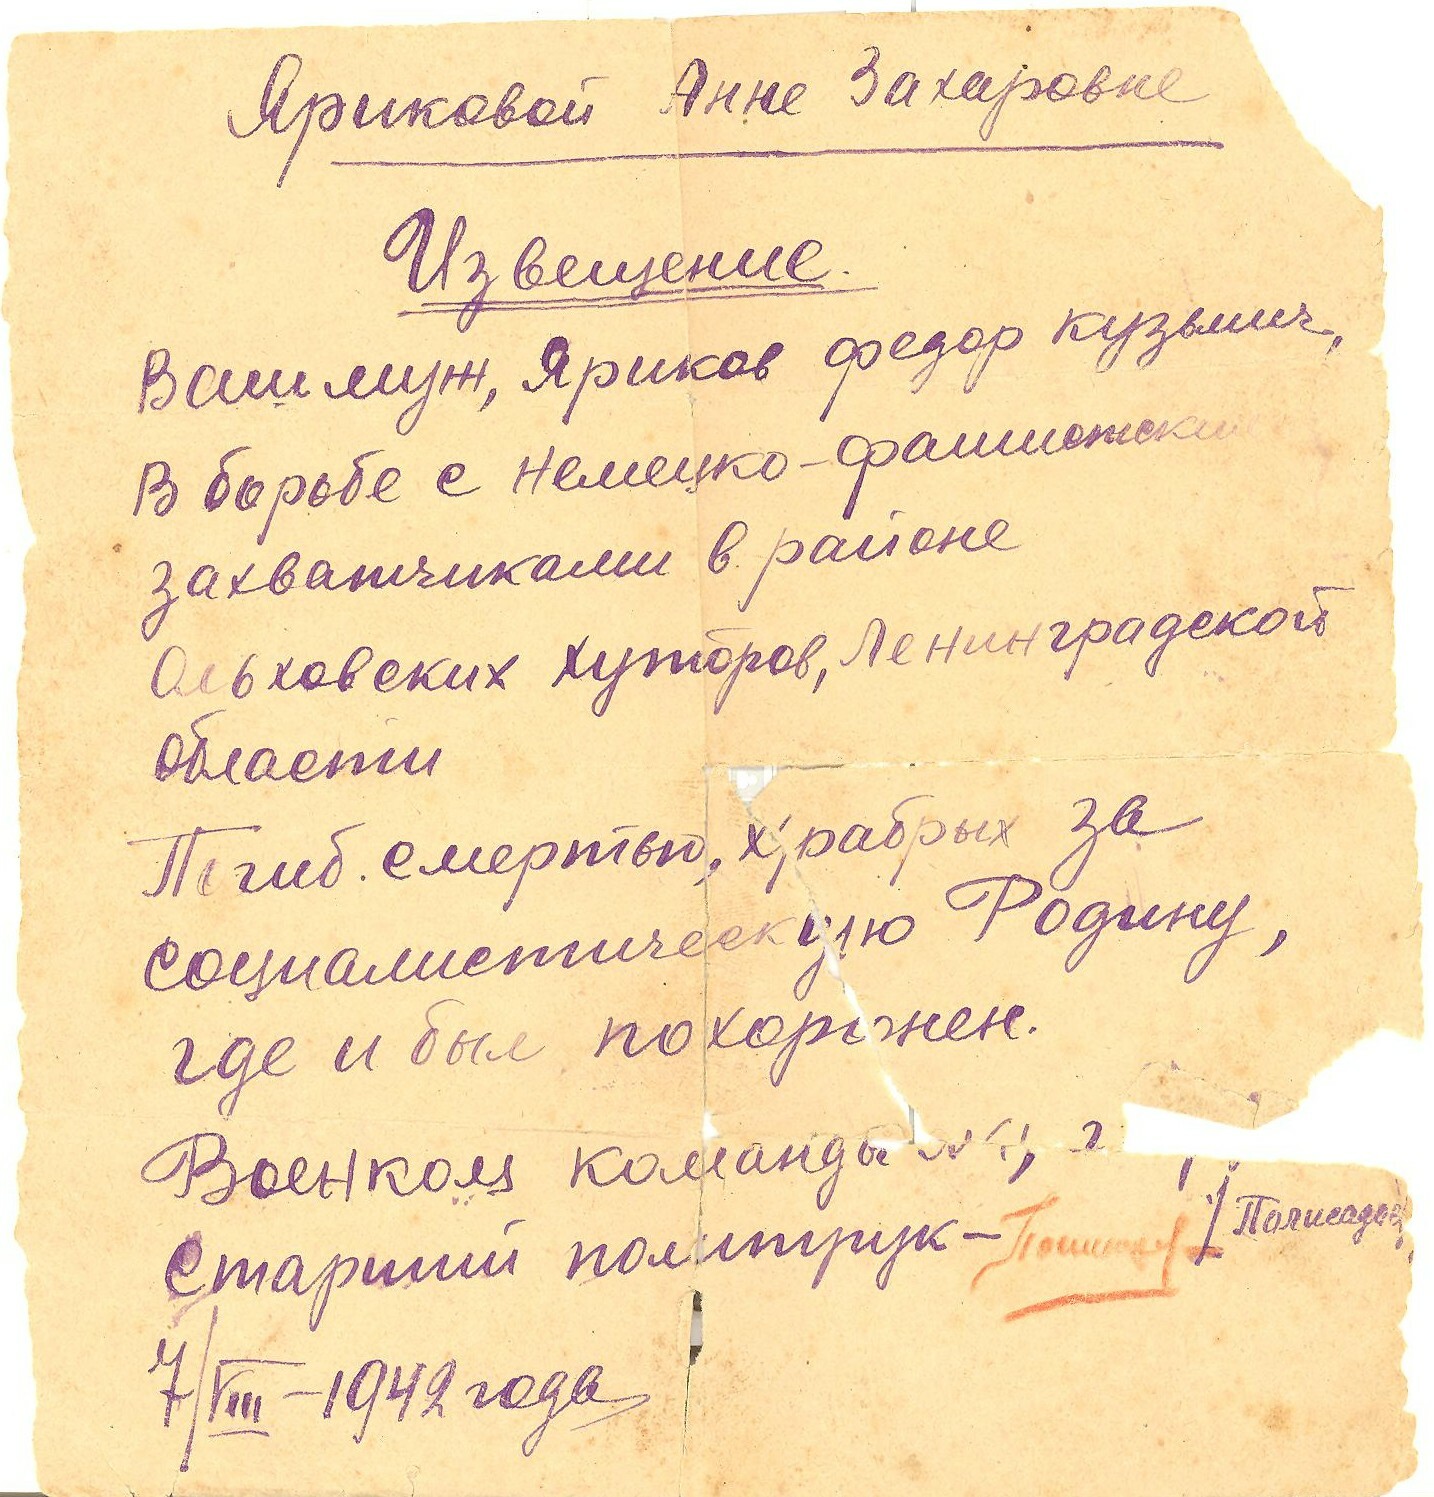 Яриковой Анне Захаровне
Извещение.
Ваш муж, Яриков Федор Кузьмич,
в борьбе с немецко-фашистским
захватчиками в районе
Ольховских хуторов, Ленинградской
области
Погиб смертью, храбрых за
социалистическую Родину,
где и был похоронен.
Военком команды
Старший политрук –
7/VIII – 1942 года